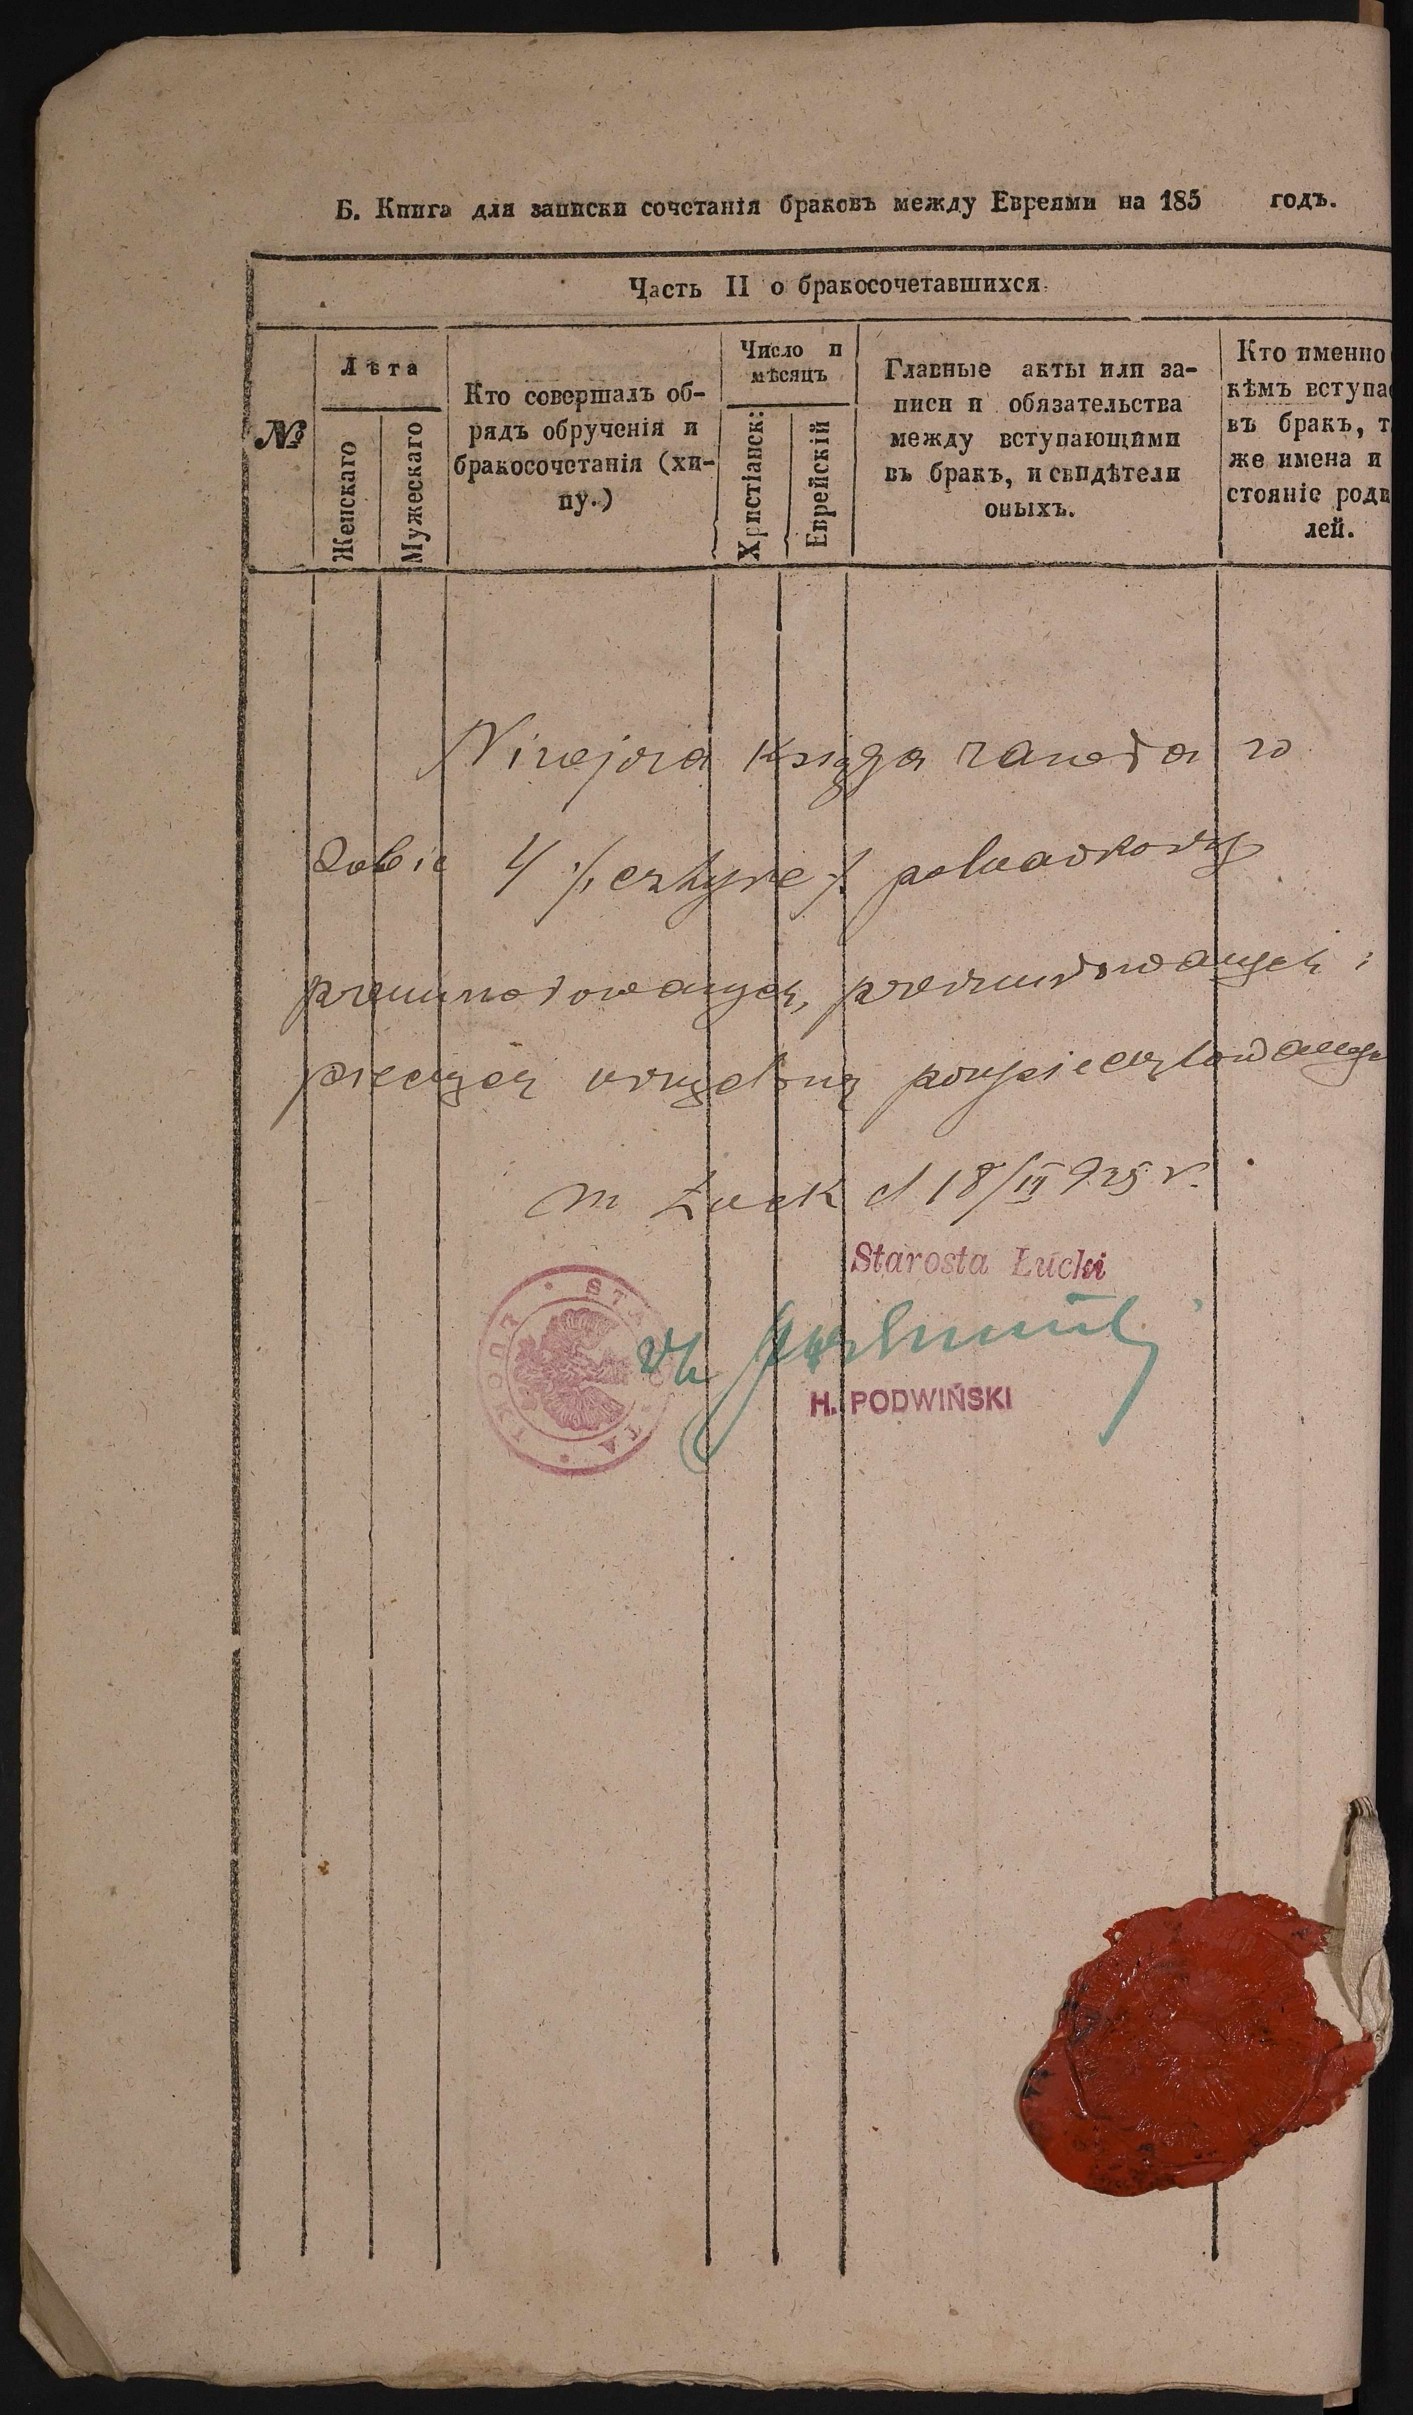 Б. Книга для записки сочетанія браковъ между Евреями на 185 годъ.
Часть II о бракосочетавшихся.
№
Лѣта
Женскаго
Мужескаго
Кто совершалъ об-
рядъ обрученія и
бракосочетанія (хи-
пу.)
Число и
мѣсяцъ
Христіанск:
Еврейскій
Главные акты или за-
писи и обязательства
между вступающими
въ бракъ, и свидѣтели
оныхъ.
Кто именно
кѣмъ вступа
въ бракъ, т
же имена и
стояніе роди
лей.
Niniejsza księga zawiera w
sobie 4 /cztery/
przenumerowanych, przesznurowanych i
pieczęcią urzędową
m Łuck d 18/III 925 r.
Starosta Łucki
H. PODWIŃSKI